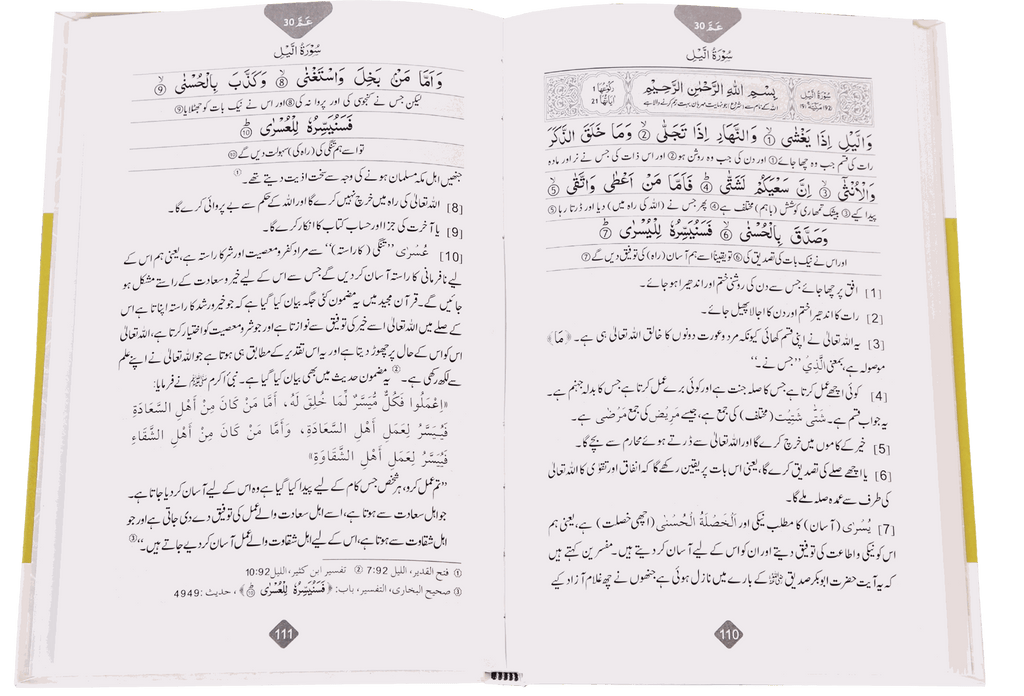 عَمَّ 30
سُوْرَةُ الَّيْلِ
سُوْرَةُ الَّيْلِ
بِسْمِ اللّٰهِ الرَّحْمٰنِ الرَّحِيْمِ
اللہ کے نام سے (شروع) جو نہایت مہربان بہت رحم کرنے والا ہے
رُكُوْعُهَا 1
اٰيَاتُهَا 21
وَالَّيْلِ اِذَا يَغْشٰى ① وَالنَّهَارِ اِذَا تَجَلّٰى ② وَمَا خَلَقَ الذَّكَرَ
رات کی قسم جب وہ چھا جائے ① اور دن کی جب وہ روشن ہو ② اور اس ذات کی جس نے نر اور مادہ
وَالْاُنْثٰٓى ③ اِنَّ سَعْيَكُمْ لَشَتّٰى ④ فَاَمَّا مَنْ اَعْطٰى وَاتَّقٰى ⑤
پیدا کیے ③ بیشک تمھاری کوشش (باہم) مختلف ہے ④ پھر جس نے (اللہ کی راہ میں) دیا اور ڈرتا رہا ⑤
وَصَدَّقَ بِالْحُسْنٰى ⑥ فَسَنُيَسِّرُهٗ لِلْيُسْرٰى ⑦
اور اس نے نیک بات کی تصدیق کی ⑥ تو یقیناً اسے ہم آسان (راہ) کی توفیق دیں گے ⑦
[1] افق پر چھا جائے جس سے دن کی روشنی ختم اور اندھیرا ہو جائے۔
[2] رات کا اندھیرا ختم اور دن کا اجالا پھیل جائے۔
[3] یہ اللہ تعالیٰ نے اپنی قسم کھائی کیونکہ مرد و عورت دونوں کا خالق اللہ تعالیٰ ہی ہے۔ ﴿مَا﴾
موصولہ ہے، بمعنی اَلَّذِيْ ’’جس نے۔‘‘
[4] کوئی اچھے عمل کرتا ہے جس کا صلہ جنت ہے اور کوئی برے عمل کرتا ہے جس کا بدلہ جہنم ہے۔
یہ جواب قسم ہے۔ شَتّٰى شَتِيْت (مختلف) کی جمع ہے، جیسے مَرِيْض کی جمع مَرْضٰى ہے۔
[5] خیر کے کاموں میں خرچ کرے گا اور اللہ تعالیٰ سے ڈرتے ہوئے محارم سے بچے گا۔
[6] یا اچھے صلے کی تصدیق کرے گا، یعنی اس بات پر یقین رکھے گا کہ انفاق اور تقویٰ کا اللہ تعالیٰ
کی طرف سے عمدہ صلہ ملے گا۔
[7] يُسْرٰى (آسان) کا مطلب نیکی اور اَلْخَصْلَةُ الْحُسْنٰى (اچھی خصلت) ہے، یعنی ہم
اس کو نیکی و اطاعت کی توفیق دیتے اور ان کو اس کے لیے آسان کر دیتے ہیں۔ مفسرین کہتے ہیں
کہ یہ آیت حضرت ابوبکر صدیق رضی اللہ عنہ کے بارے میں نازل ہوئی ہے جنھوں نے چھ غلام آزاد کیے
110
عَمَّ 30
سُوْرَةُ الَّيْلِ
وَاَمَّا مَنْ بَخِلَ وَاسْتَغْنٰى ⑧ وَكَذَّبَ بِالْحُسْنٰى ⑨
لیکن جس نے کنجوسی کی اور پروا نہ کی ⑧ اور اس نے نیک بات کو جھٹلایا ⑨
فَسَنُيَسِّرُهٗ لِلْعُسْرٰى ⑩
تو اسے ہم تنگی کی (راہ کی) سہولت دیں گے ⑩
جنھیں اہل مکہ مسلمان ہونے کی وجہ سے سخت اذیت دیتے تھے۔①
[8] اللہ تعالیٰ کی راہ میں خرچ نہیں کرے گا اور اللہ کے حکم سے بے پروائی کرے گا۔
[9] یا آخرت کی جزا اور حساب کتاب کا انکار کرے گا۔
[10] عُسْرٰى ’’تنگی (کا راستہ)‘‘ سے مراد کفر و معصیت اور شر کا راستہ ہے، یعنی ہم اس کے
لیے نافرمانی کا راستہ آسان کر دیں گے جس سے اس کے لیے خیر و سعادت کے راستے مشکل ہو
جائیں گے۔ قرآن مجید میں یہ مضمون کئی جگہ بیان کیا گیا ہے کہ جو خیر و رشد کا راستہ اپناتا ہے اس
کے صلے میں اللہ تعالیٰ اسے خیر کی توفیق سے نوازتا ہے اور جو شر و معصیت کو اختیار کرتا ہے، اللہ تعالیٰ
اس کو اس کے حال پر چھوڑ دیتا ہے اور یہ اس تقدیر کے مطابق ہی ہوتا ہے جو اللہ تعالیٰ نے اپنے علم
سے لکھ رکھی ہے۔② یہ مضمون حدیث میں بھی بیان کیا گیا ہے۔ نبی اکرم ﷺ نے فرمایا:
«اِعْمَلُوا فَكُلٌّ مُّيَسَّرٌ لِّمَا خُلِقَ لَهُ، أَمَّا مَنْ كَانَ مِنْ أَهْلِ السَّعَادَةِ
فَيُيَسَّرُ لِعَمَلِ أَهْلِ السَّعَادَةِ، وَأَمَّا مَنْ كَانَ مِنْ أَهْلِ الشَّقَاءِ
فَيُيَسَّرُ لِعَمَلِ أَهْلِ الشَّقَاوَةِ»
’’تم عمل کرو، ہر شخص جس کام کے لیے پیدا کیا گیا ہے وہ اس کے لیے آسان کر دیا جاتا ہے۔
جو اہل سعادت سے ہوتا ہے، اسے اہل سعادت والے عمل کی توفیق دے دی جاتی ہے اور جو
اہل شقاوت سے ہوتا ہے، اس کے لیے اہل شقاوت والے عمل آسان کر دیے جاتے ہیں۔‘‘③
① فتح القدیر، اللیل 7:92 ② تفسیر ابن کثیر، اللیل 10:92
③ صحیح البخاری، التفسیر، باب: ﴿فَسَنُيَسِّرُهٗ لِلْعُسْرٰى ⑩﴾، حدیث: 4949
111